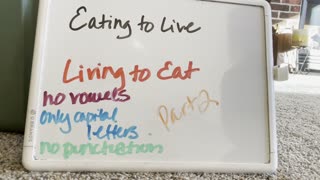 Eating to Live
Living to Eat
no vowels
only capital
letters
no punctuation
Part 2